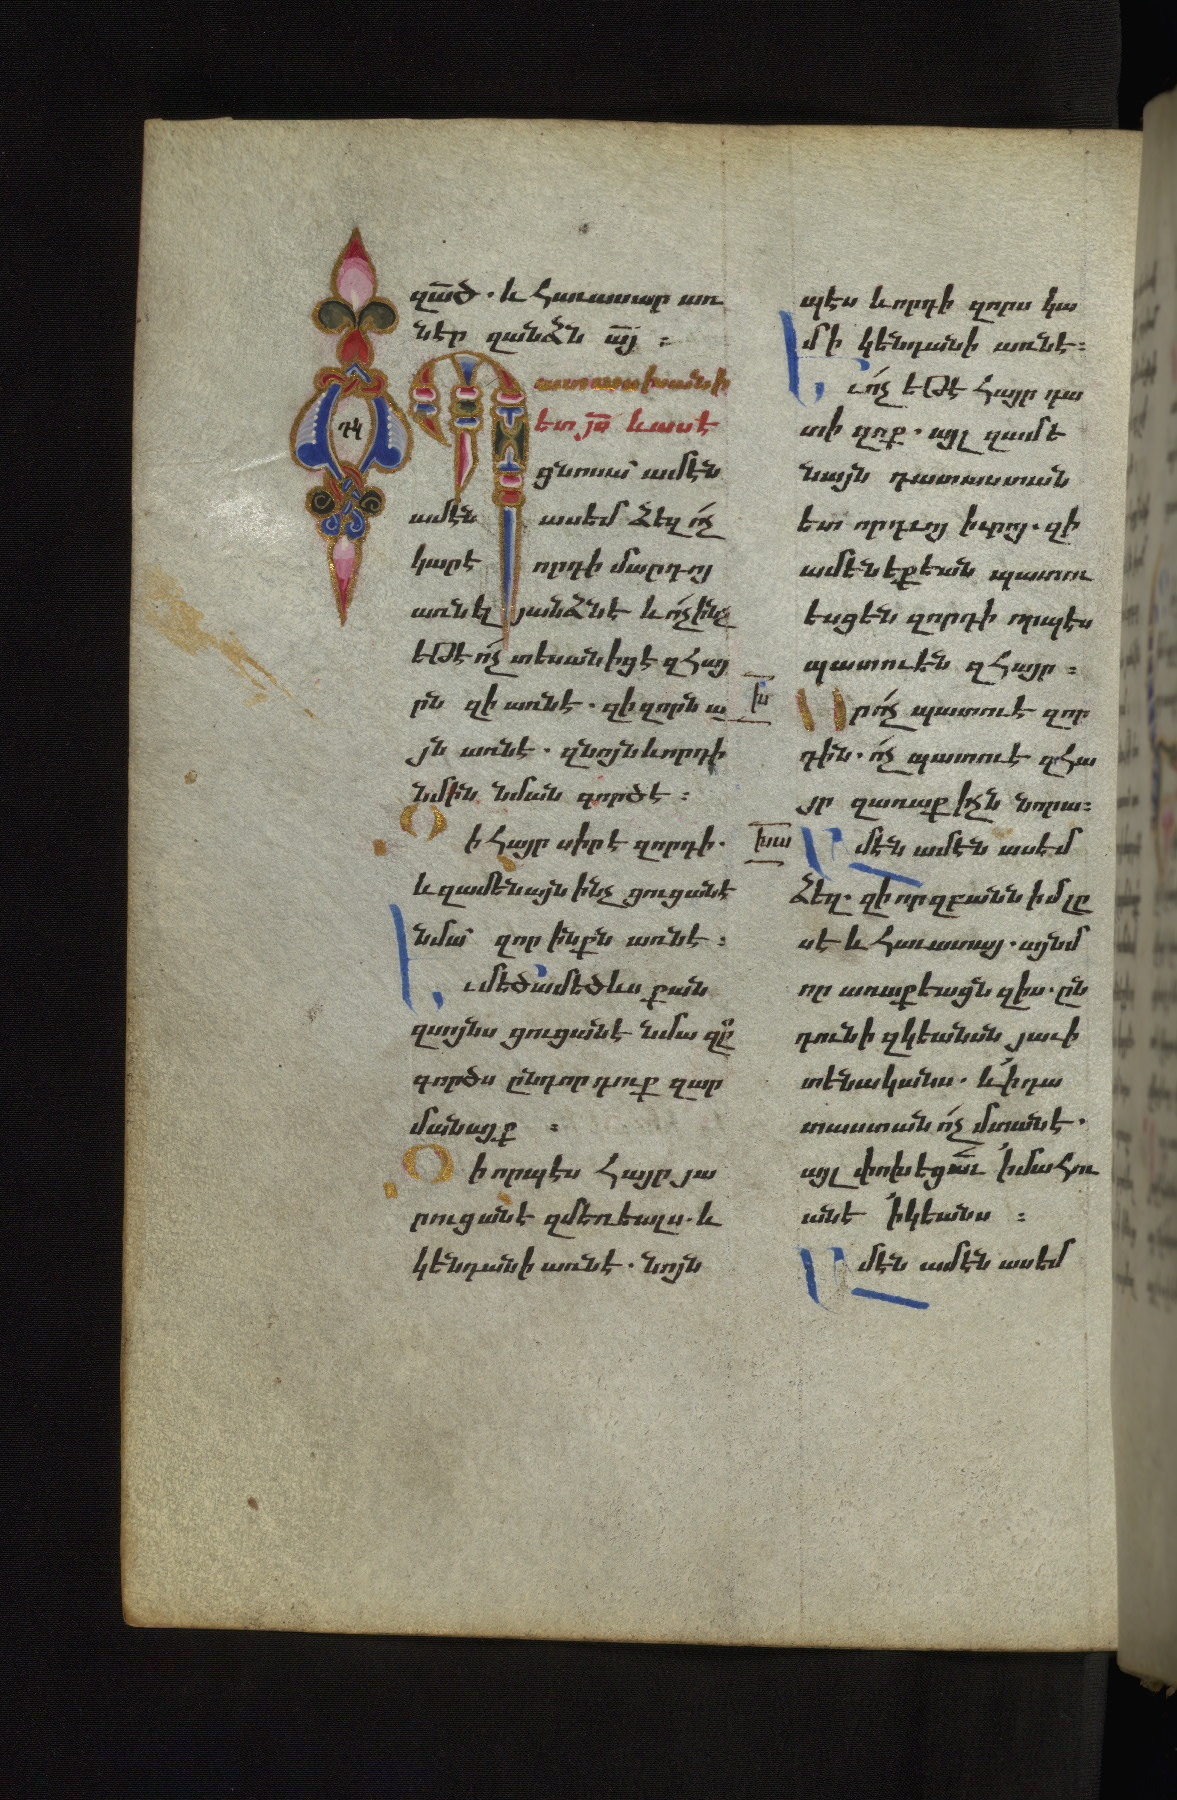 զա՟ծ. և հաւասար առ
նէր զանձն ա՟յ ։
Պատասխանի
ետ յ՟ս և ասէ
ցնոսա՝ ամէն
ամէն ասեմ ձեզ ո՛չ
կարէ որդի մարդոյ
առնել յանձնէ և ո՛չինչ
եթէ ո՛չ տեսանիցէ զհայ
րն զի առնէ. զի զորն ա
յն առնէ. զնոյն և որդի
նմին նման գործէ ։
Զի հայր սիրէ զորդի.
և զամենայն ինչ ցուցանէ
նմա՝ զոր ինքն առնէ ։
Եւ մեծամեծևս քան
զսոյնս ցուցանէ նմա
գործս ընդոր դուք զար
մանայք ։
Զի որպէս հայր յա
րուցանէ զմեռեալս. և
կենդանի առնէ. նոյն
պէս և որդի զորս կա
մի կենդանի առնէ։
Եւ ո՛չ եթէ հայր դա
տի զոք. այլ զամե
նայն դատաստան
ետ որդւոյ իւրոյ. զի
ամենեքեան պատու
եսցեն զորդի որպէս
պատուեն զհայր ։
խ
Որ ո՛չ պատուէ զոր
դին. ո՛չ պատուէ զհա
յր զառաքիչն նորա։
խա
Ամէն ամէն ասեմ
ձեզ. զի որ զբանն իմ լը
սէ և հաւատայ. այնմ
որ առաքեացն զիս. ըն
դունի զկեանսն յաւի
տենականս. և ի դա
տաստան ո՛չ մտանէ.
այլ փոխեցա՟ւ ի մահու
անէ ի կեանս ։
Ամէն ամէն ասեմ